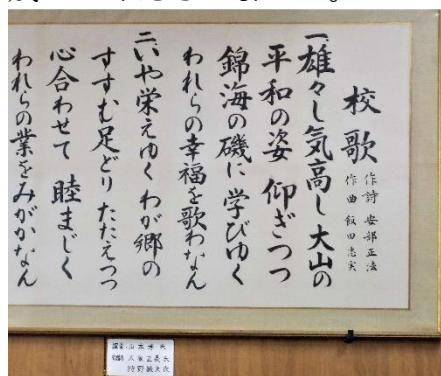 校歌
作詩 安部正法
作曲 飯田忠実
一、雄々し気高し大山の
平和の姿 仰ぎつつ
錦海の磯に 学びゆく
われらの幸福を歌わなん
二、いや栄えゆく わが郷の
すすむ足どり たたえつつ
心合わせて 睦まじく
われらの業をみがかなん